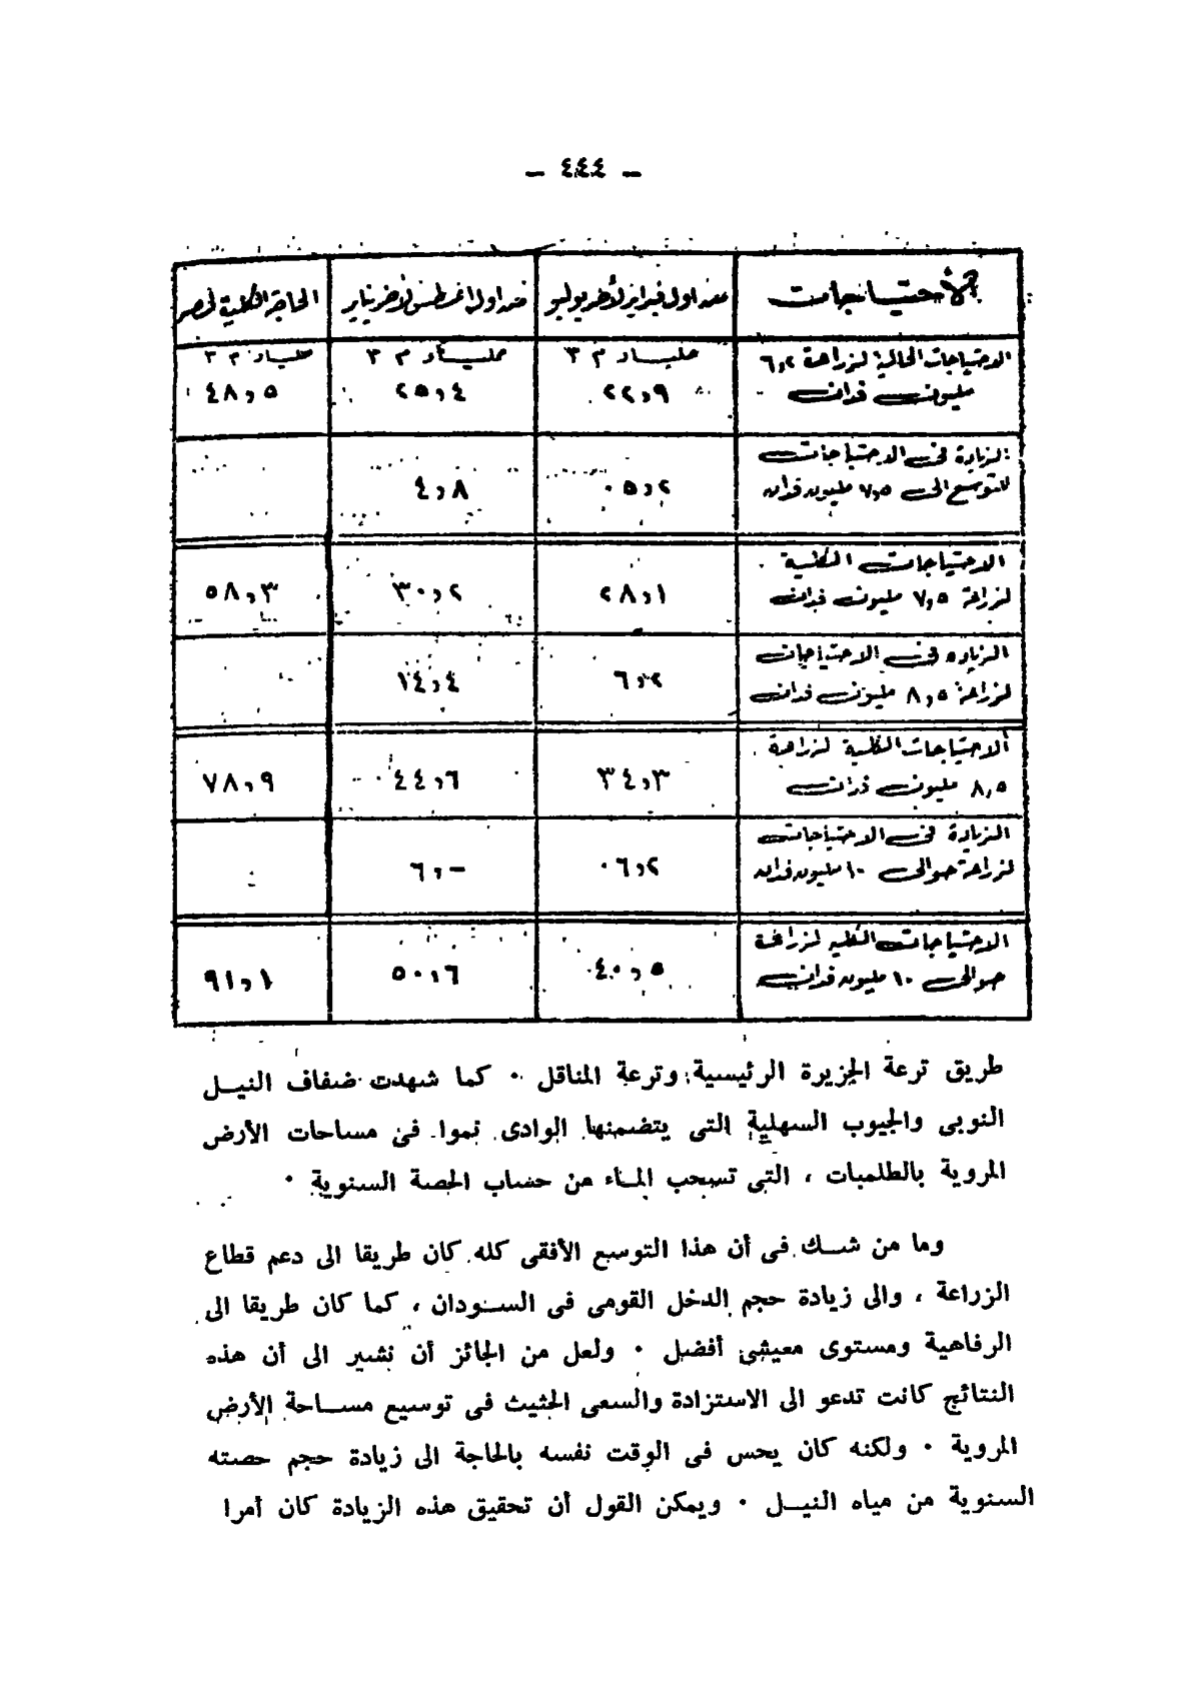 – ٤٤٤ –
الاحتياجات	من اول فبراير لأخر يوليو	من اول اغسطس لأخر يناير	الحاجة الكلية لمصر
الاحتياجات الحالية لزراعة ٦,٢	مليار م ٣	مليار م ٣	مليار م ٣
مليون فدان	٢٢,٩	٢٥,٤	٤٨,٥
الزيادة فى الاحتياجات
للتوسع الى ٧,٥ مليون فدان	٠٥,٢	٤,٨
الاحتياجات الكلية
لزراعة ٧,٥ مليون فدان	٢٨,١	٣٠,٢	٥٨,٣
الزياده فى الاحتياجات
لزراعة ٨,٥ مليون فدان	٦,٢	١٤,٤
الاحتياجات الكلية لزراعة
٨,٥ مليون فدان	٣٤,٣	٤٤,٦	٧٨,٩
الزيادة فى الاحتياجات
لزراعة حوالى ١٠ مليون فدان	٠٦,٢	٦,–
الاحتياجات الكليه لزراعة
حوالى ١٠ مليون فدان	٤٠,٥	٥٠,٦	٩١,١
طريق ترعة الجزيرة الرئيسية وترعة المناقل ٠ كما شهدت ضفاف النيـل
النوبى والجيوب السهلية التى يتضمنها الوادى نموا فى مساحات الأرض
المروية بالطلمبات ، التى تسحب المـاء من حساب الحصة السنوية ٠
وما من شـك فى أن هذا التوسع الأفقى كله كان طريقا الى دعم قطاع
الزراعة ، والى زيادة حجم الدخل القومى فى السـودان ، كما كان طريقا الى
الرفاهية ومستوى معيشى أفضل ٠ ولعل من الجائز أن نشير الى أن هذه
النتائج كانت تدعو الى الاستزادة والسعى الحثيث فى توسيع مسـاحة الأرض
المروية ٠ ولكنه كان يحس فى الوقت نفسه بالحاجة الى زيادة حجم حصته
السنوية من مياه النيـل ٠ ويمكن القول أن تحقيق هذه الزيادة كان أمرا